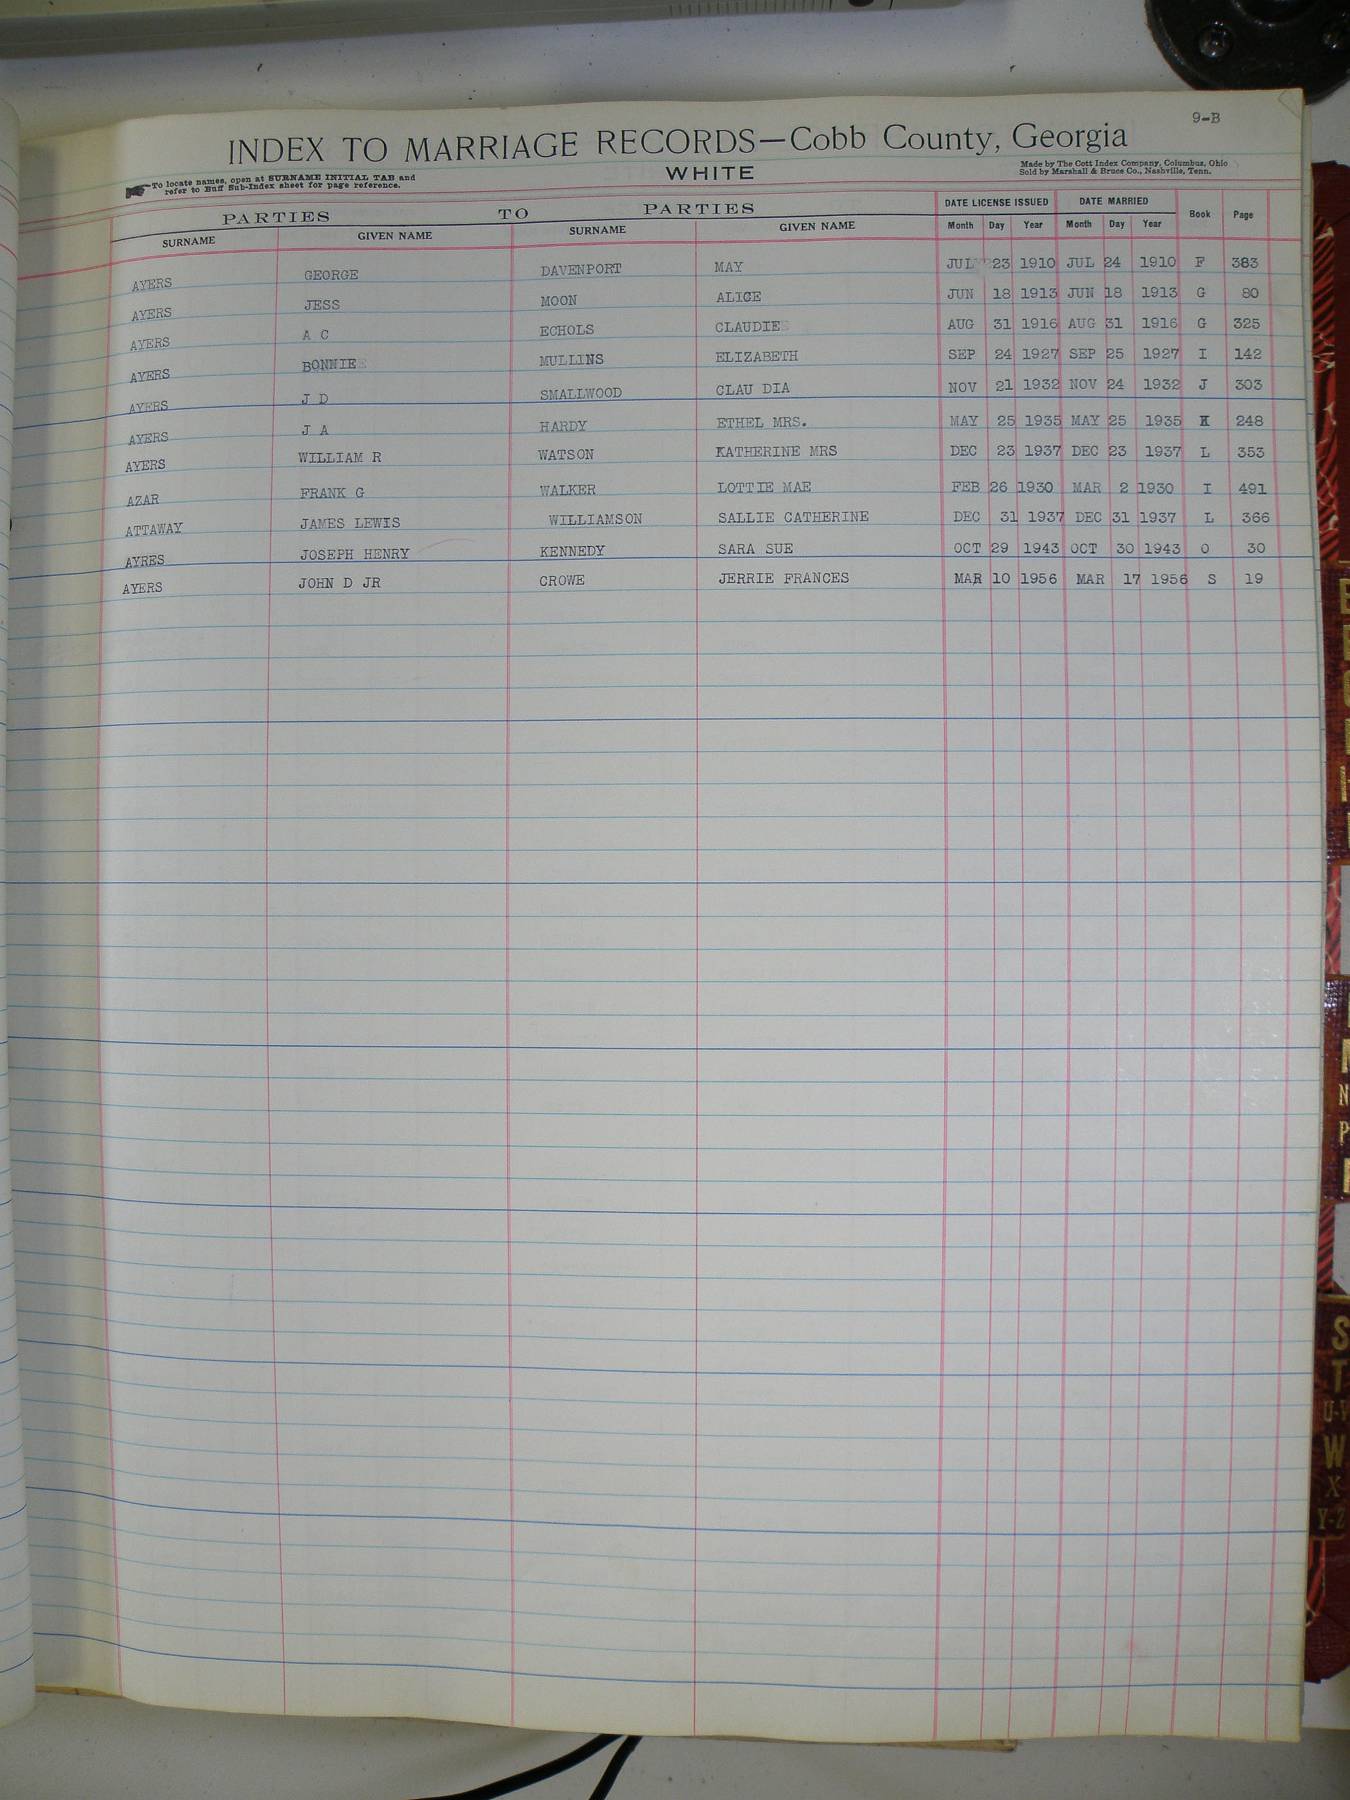 9-B
INDEX TO MARRIAGE RECORDS—Cobb County, Georgia
WHITE
To locate names, open at SURNAME INITIAL TAB and
refer to Buff Sub-Index sheet for page reference.
Made by The Cott Index Company, Columbus, Ohio
Sold by Marshall & Bruce Co., Nashville, Tenn.
PARTIES TO PARTIES DATE LICENSE ISSUED DATE MARRIED Book Page
SURNAME GIVEN NAME SURNAME GIVEN NAME Month Day Year Month Day Year
AYERS GEORGE DAVENPORT MAY JUL 23 1910 JUL 24 1910 F 383
AYERS JESS MOON ALICE JUN 18 1913 JUN 18 1913 G 80
AYERS A C ECHOLS CLAUDIE AUG 31 1916 AUG 31 1916 G 325
AYERS BONNIE MULLINS ELIZABETH SEP 24 1927 SEP 25 1927 I 142
AYERS J D SMALLWOOD CLAU DIA NOV 21 1932 NOV 24 1932 J 303
AYERS J A HARDY ETHEL MRS. MAY 25 1935 MAY 25 1935 K 248
AYERS WILLIAM R WATSON KATHERINE MRS DEC 23 1937 DEC 23 1937 L 353
AZAR FRANK G WALKER LOTTIE MAE FEB 26 1930 MAR 2 1930 I 491
ATTAWAY JAMES LEWIS WILLIAMSON SALLIE CATHERINE DEC 31 1937 DEC 31 1937 L 366
AYRES JOSEPH HENRY KENNEDY SARA SUE OCT 29 1943 OCT 30 1943 O 30
AYERS JOHN D JR CROWE JERRIE FRANCES MAR 10 1956 MAR 17 1956 S 19
S
T
W
X